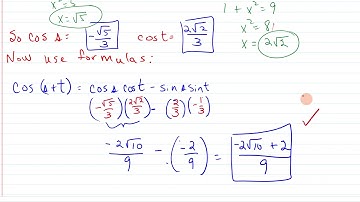 x² = 5
x = √5
1 + x² = 9
x² = 81
x = 2√2
So cos s = -√5/3 cost = 2√2/3
Now use formulas:
cos (s+t) = cos s cost - sin s sin t
(-√5/3)(2√2/3) - (2/3)(-1/3)
-2√10/9 - (-2/9) = -2√10 + 2/9